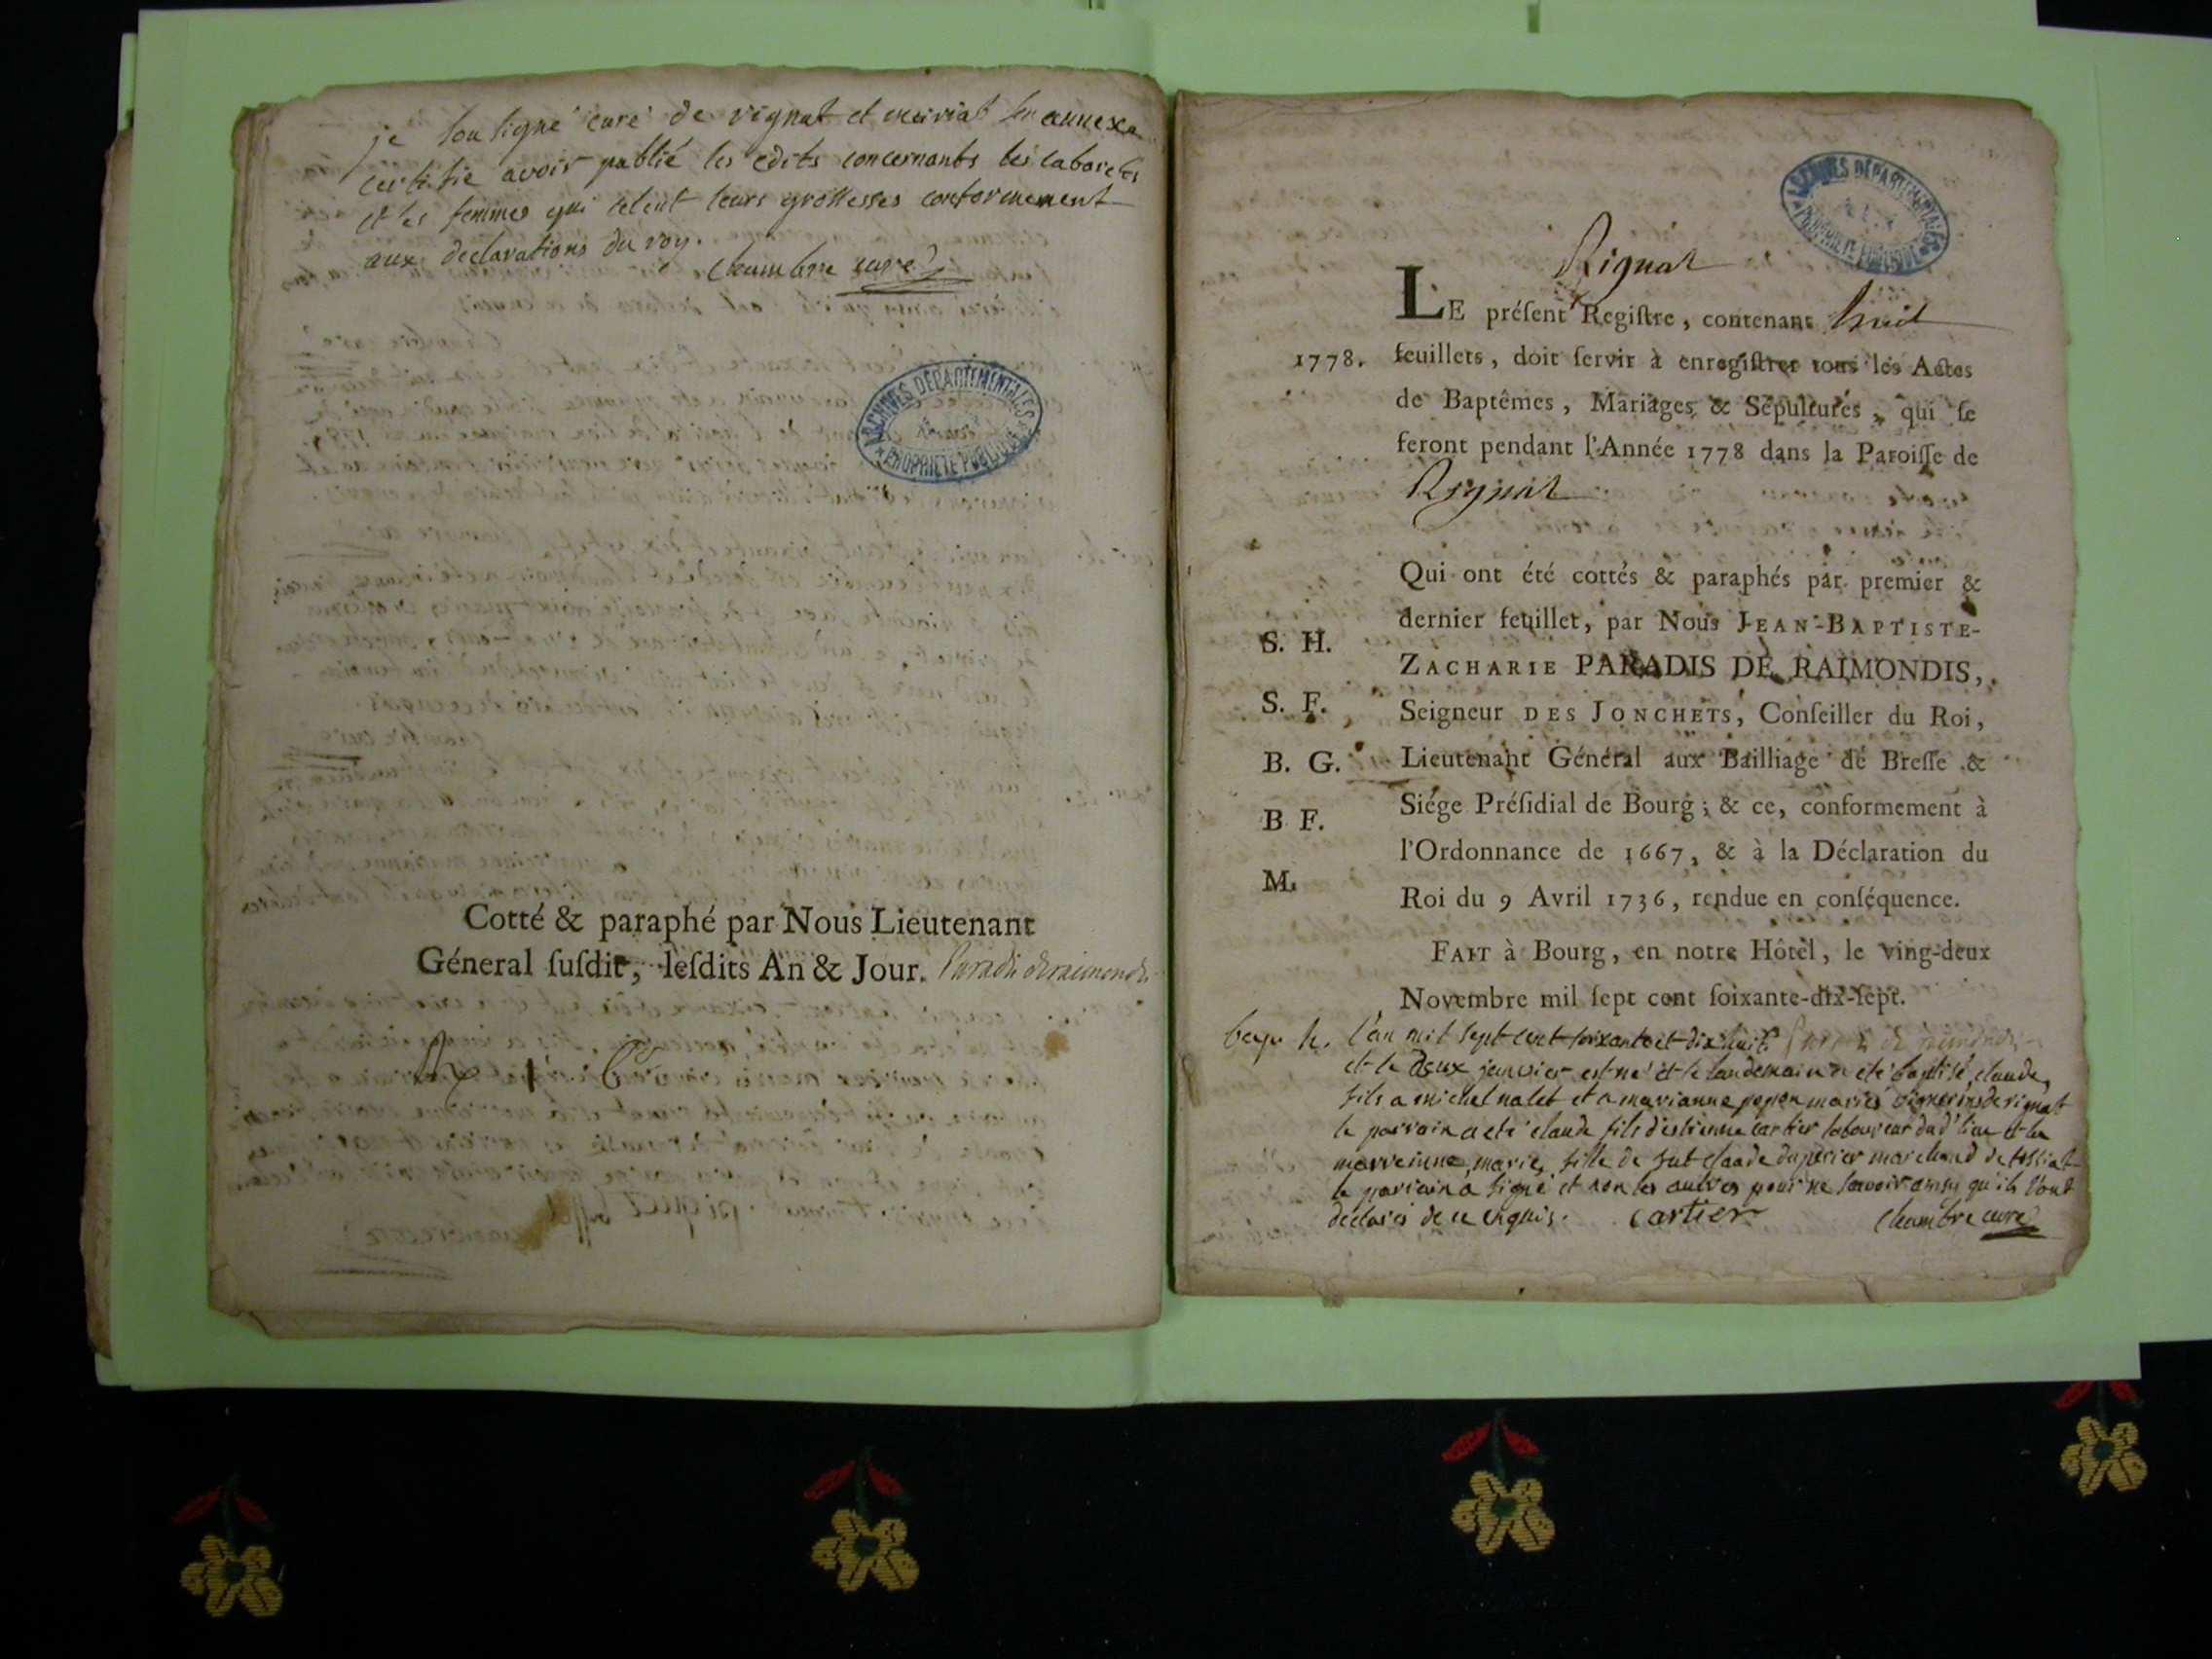 je sousigné curé de rignat et meiriat son annexe
certifie avoir publié les edits concernants les cabarets
et les femmes qui celent leurs grossesses conformement
aux declarations du roy.
Chambre curé
ARCHIVES DÉPARTEMENTALES
PROPRIÉTÉ PUBLIQUE
Cotté & paraphé par Nous Lieutenant
Géneral ſuſdit, leſdits An & Jour. Paradis deraimondis
ARCHIVES DÉPARTEMENTALES
PROPRIÉTÉ PUBLIQUE
Rignat
LE préſent Regiſtre, contenant huit
1778. feuillets, doit ſervir à enregiſtrer tous les Actes
de Baptêmes, Mariages & Sépultures, qui ſe
feront pendant l'Année 1778 dans la Paroiſſe de
Rignat
Qui ont été cottés & paraphés par premier &
dernier feuillet, par Nous JEAN-BAPTISTE-
S. H.
ZACHARIE PARADIS DE RAIMONDIS,
S. F. Seigneur DES JONCHETS, Conſeiller du Roi,
B. G. Lieutenant Général aux Bailliage de Breſſe &
B F. Siége Préſidial de Bourg; & ce, conformement à
l'Ordonnance de 1667, & à la Déclaration du
M.
Roi du 9 Avril 1736, rendue en conſéquence.
FAIT à Bourg, en notre Hôtel, le ving-deux
Novembre mil ſept cent ſoixante-dix-ſept.
l'an mil sept cent soixante et dix huit
et le deux janvier est né et le landemain a été baptisé claude,
fils a michel nalet et a marianne popon mariés vignerons de rignat
le parrain a eté claude fils d'estienne cartier laboureur dud' lieu et la
marreinne marie, fille de fut claude duperier marchand de tossiat
le parrain a signé et non les autres pour ne savoir ainsi qu'ils l'ont
declarés de ce enquis. cartier Chambre curé